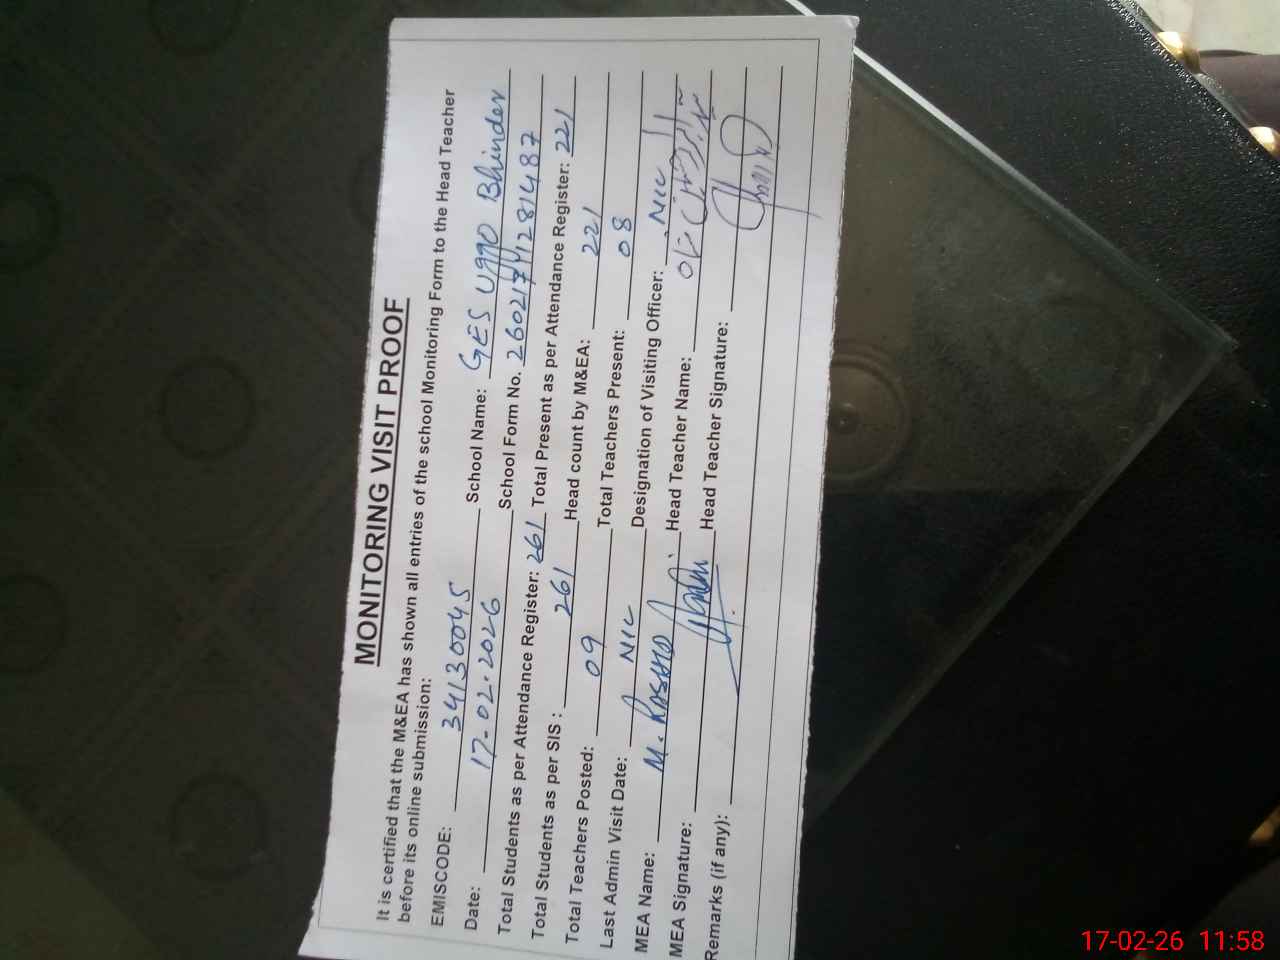 MONITORING VISIT PROOF
It is certified that the M&EA has shown all entries of the school Monitoring Form to the Head Teacher
before its online submission:
EMISCODE: 34130045 School Name: GES Uggo Bhinder
Date: 17-02-2026 School Form No. 260217141281487
Total Students as per Attendance Register: 261 Total Present as per Attendance Register: 221
Total Students as per SIS : 261 Head count by M&EA: 221
Total Teachers Posted: 09 Total Teachers Present: 08
Last Admin Visit Date: NIL Designation of Visiting Officer: NIL
MEA Name: M. Head Teacher Name:
MEA Signature: Head Teacher Signature:
Remarks (if any):
17-02-26 11:58